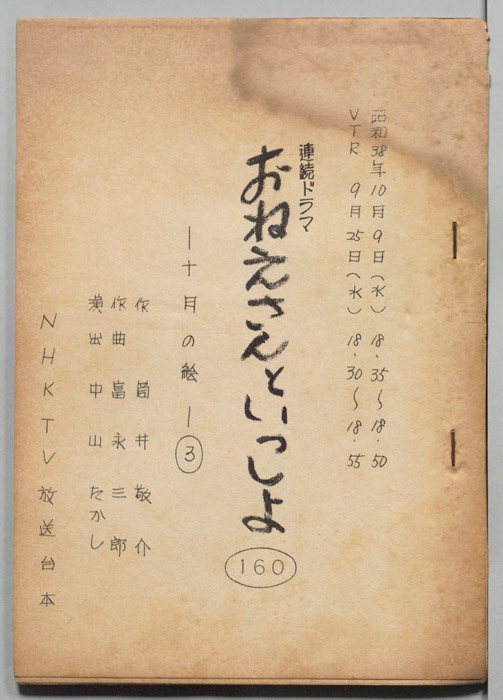 昭和38年10月9日(水) 18.35～18.50
VTR 9月25日(水) 18.30～18.55
連続ドラマ
おねえさんといっしょ
160
―十月の絵― 3
作 筒井敬介
作曲 冨永三郎
演出 中山たかし
NHKTV放送台本